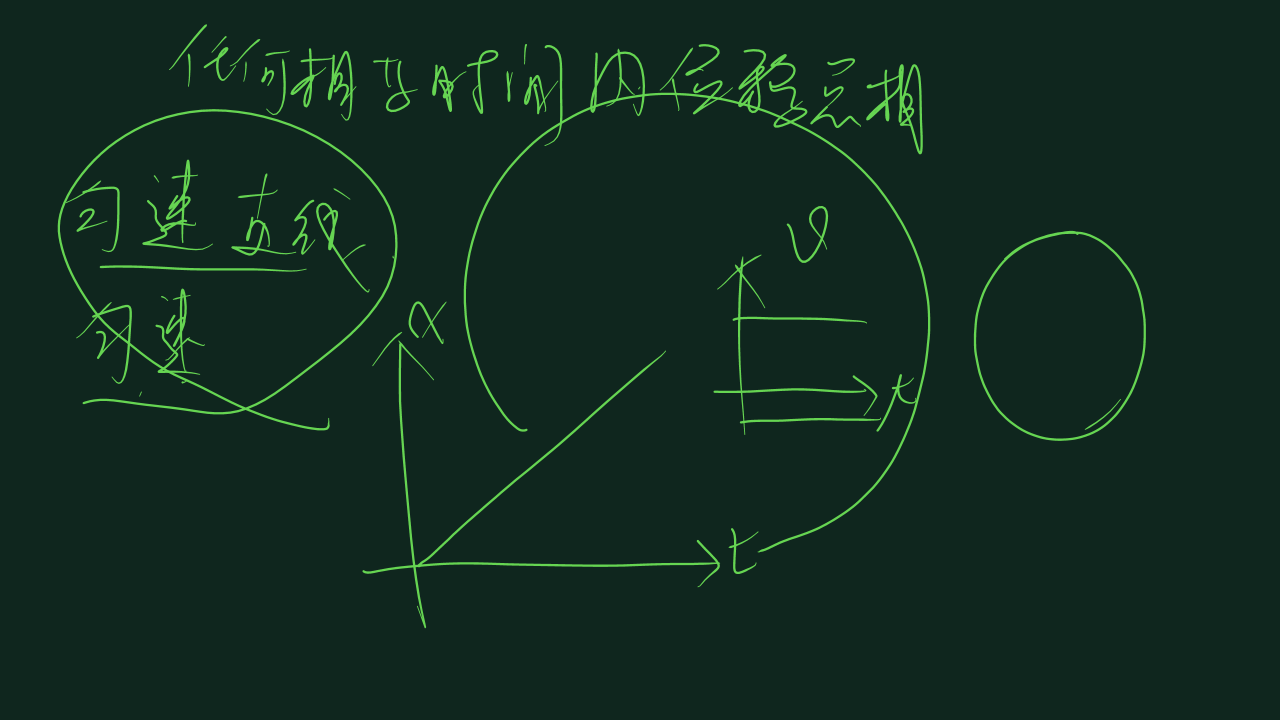 任何相等时间内位移总相
匀速直线
匀速
v
x
t
t